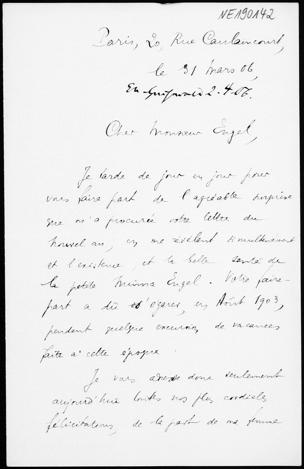 NE190142
Paris, 20, Rue Caulaincourt,
le 31 mars 06,
2-4-06.
Cher Monsieur Engel,
Je tarde de jour en jour pour
vous faire part de l'agréable surprise
que m'a procurée votre lettre du
nouvel an, en me révélant simultanément
et l'existence, et la belle santé de
la petite Minna Engel. Votre faire-
part a dû s'égarer, en Août 1903,
pendant quelque excursion de vacances
faite à cette époque.
Je vous adresse donc seulement
aujourd'hui toutes nos plus cordiales
félicitations, de la part de ma femme